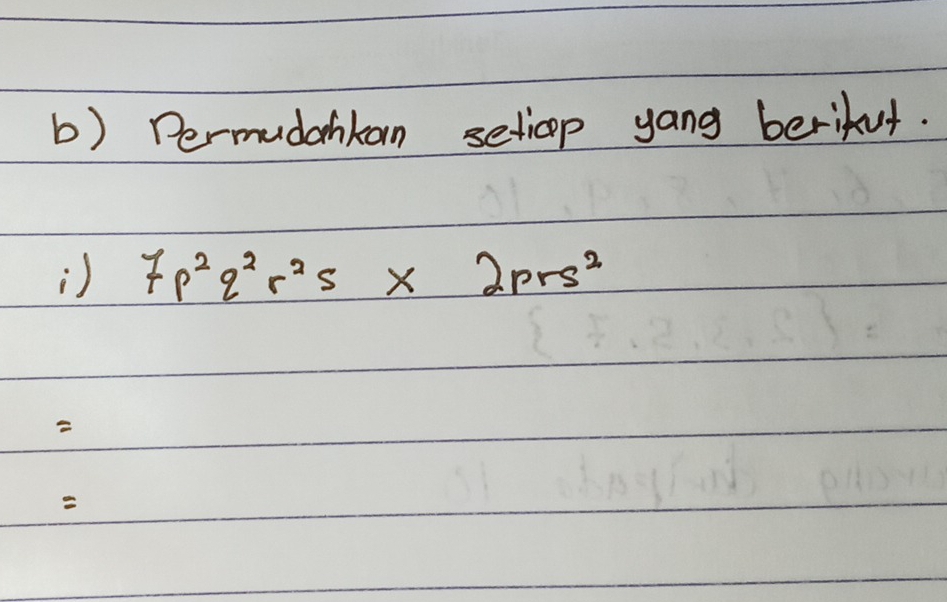 b) Permudahkan setiap yang berikut.
i) 7p²q²r²s × 2prs²
=
=